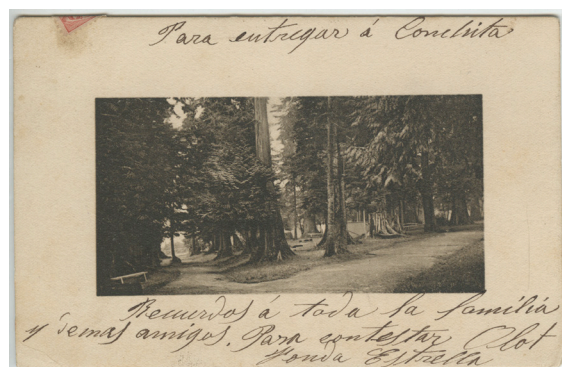 Para entregar á Conchita
Recuerdos á toda la familia
y demas amigos. Para contestar Clot
Fonda Estrella